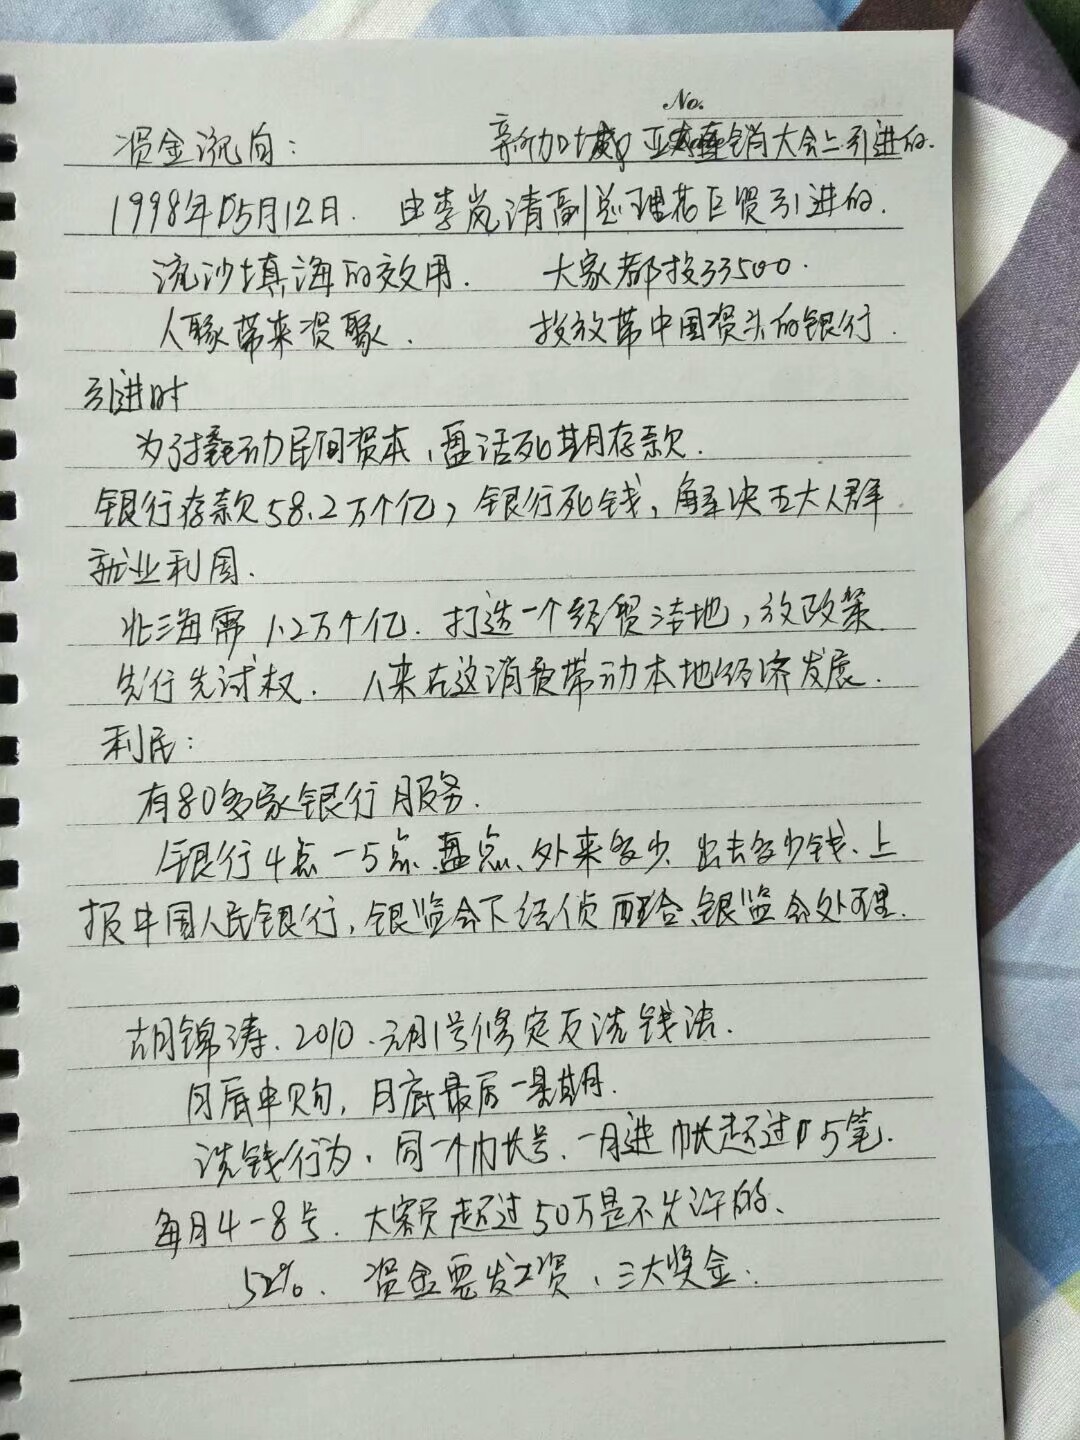 No.
资金流向： 新加坡 亚太直销大会上引进的.
1998年05月12日. 由李岚清副总理花巨资引进的.
流沙填海的效用. 大家都投33500.
人聚带来资聚. 投放带中国资头的银行.
引进时
为了撬动民间资本,盘活死期存款.
银行存款58.2万个亿,银行死钱,解决五大人群
就业利国.
北海需1.2万个亿.打造一个经贸洁地,放政策
先行先试权. 人来在这消费带动本地经济发展.
利民:
有80多家银行服务.
银行4点-5点.盘点、外来多少、出去多少钱、上
报中国人民银行,银监会下经侦配合、银监会处理.
胡锦涛.2010.元月1号修定反洗钱法.
月底申购,月底最后一星期.
洗钱行为,同一个帐号、一月进帐超过15笔.
每月4-8号.大额超过50万是不允许的、
52%. 资金要发工资、三大奖金.